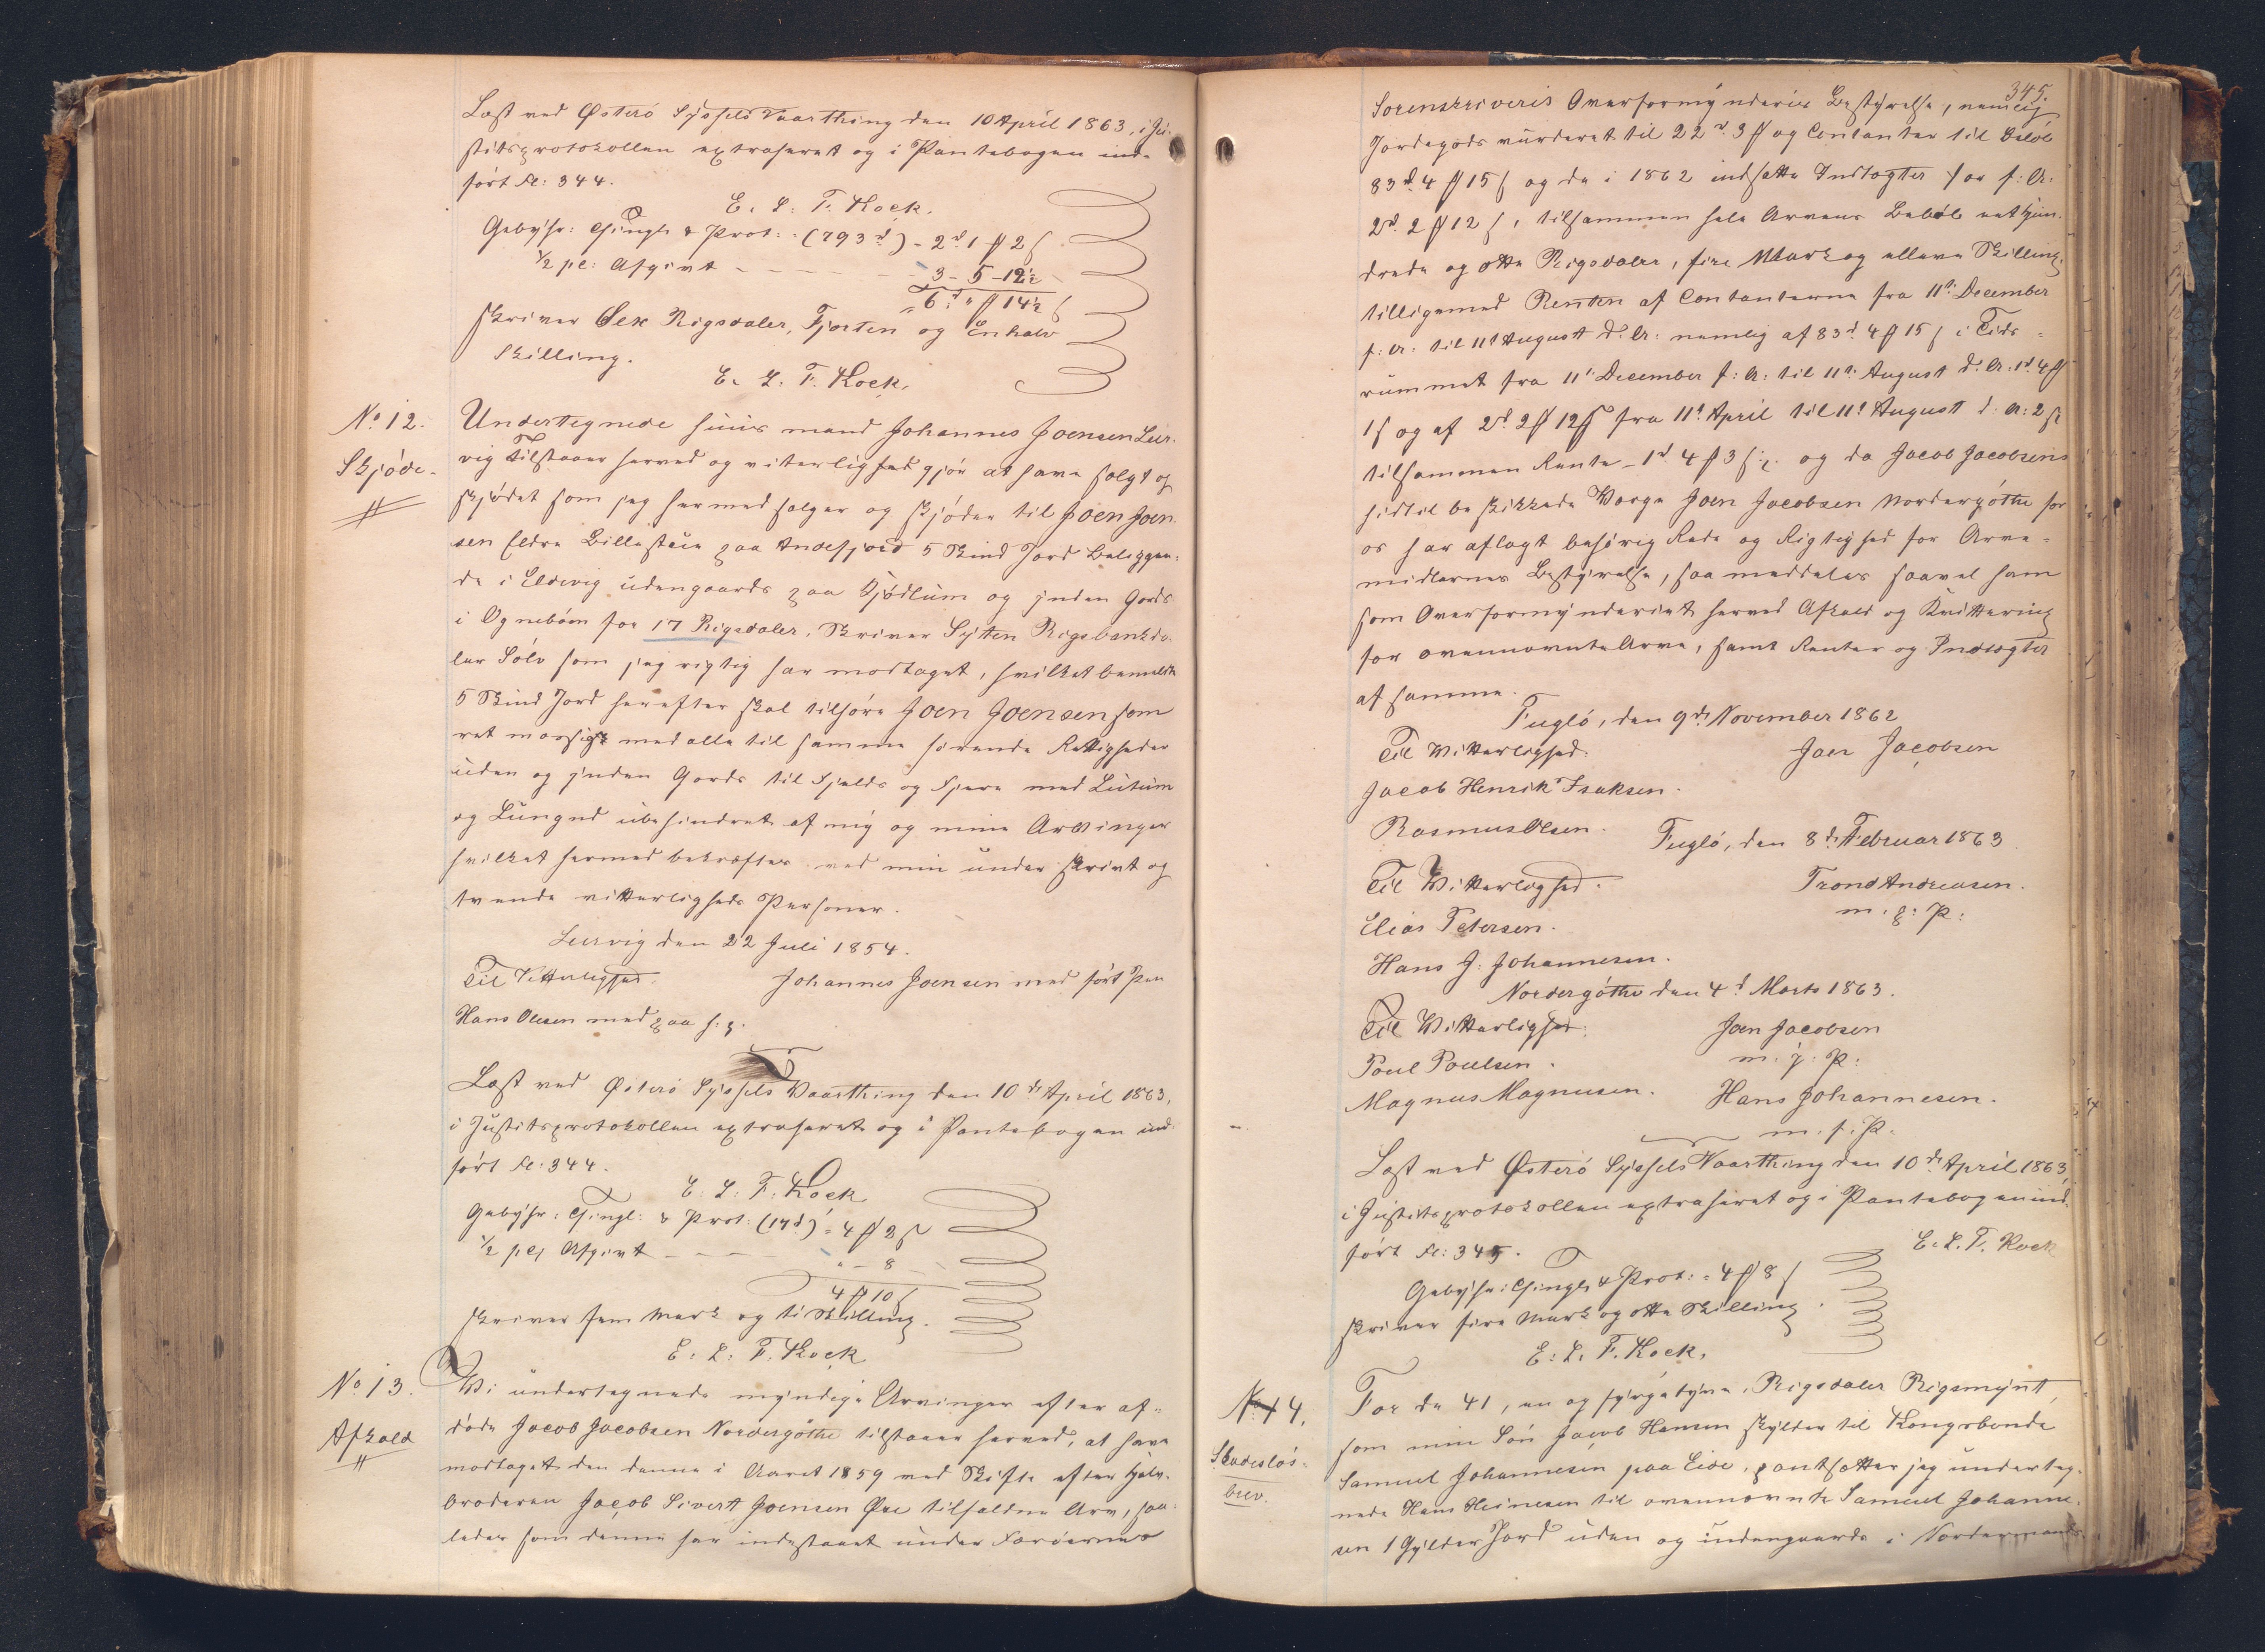 Læst ved Østerø Syssels Vaarthing den 10 April 1863, i Ju-
stitsprotokollen extraheret og i Pantebogen ind-
ført fl: 344.
E. L: F. Kock.
Gebyhr: Thingl: & Prot: (793 rd) - 2 rd 1 ₻ 2 ß
1/2 pC: Afgivt - - - - 3 - 5 - 12½
6 rd " ₻ 14½ ß
skriver Sex Rigsdaler, Fjorten og En halv
Skilling.
E. L. F. Kock.
No. 12.
Skjøde.
Undertegnede huusmand Johannes Joensen Leer-
vig tilstaaer herved og viterlighed gjør at have solgt og
skjødet som jeg hermed sælger og skjøder til Joen Joen-
sen Eldre Billestein paa Andefjord 5 Skind Jord beliggen-
de i Eldevig udengaards paa Kjødlum og ynden Gords
i Ognebóen for 17 Rigsdaler. Skriver Sytten Rigsbankda-
ler Sølv som jeg rigtig har modtaget, hvilket bemeldte
5 Skind Jord herefter skal tilhøre Joen Joensen som
ret massigt med alle til samme hørende Rettigheder
uden og ynden Gords til Fjelds og Fjære med Lutum
og Lungnd ubehindret af mig og mine Arvinger
hvilket hermed bekræftes ved min under skrivt og
tvende vitterligheds Personer.
Leervig den 22 Juli 1854.
Til Vitterlighed. Johannes Joensen med ført Pen
Hans Olesen med paa h: P.
Læst ved Østerø Syssels Vaarthing den 10de April 1863,
i Justitsprotokollen extraheret og i Pantebogen ind-
ført fl: 344.
E. L: F. Kock
Gebyhr: Thingl: & Prot: (17 rd) = 4 ₻ 2 ß
1/2 pC, Afgivt - - - " - 8
4 ₻ 10 ß
skriver fem Mark og ti Skilling.
E: L: F. Kock
No 13.
Afkald
Vi undertegnede myndige Arvinger efter af-
døde Jacob Jacobsen Nordregøthe tilstaaer herved, at have
modtaget den denne i Aaret 1859 ved Skifte efter Halv-
broderen Jacob Sivertt Joensen Øre tilfaldne Arv, saa-
ledes som denne har indestaaet under Færøernes
345.
Sorenskriveris Overformynderies Bestyrelse, nemlig
Jordegods vurderet til 22 rd 3 ₻ og Contanter til Beløb
83 rd 4 ₻ 15 ß og de i 1862 indsatte Indtægter for f: A:
2 rd 2 ₻ 12 ß, tilsammen hele Arvens Beløb et hun-
drede og otte Rigsdaler, fire Mark og elleve Skilling,
tilligemed Renten af Contanterne fra 11te December
f: A: til 11te August d: A: nemlig af 83 rd 4 ₻ 15 ß i Tids-
rummet fra 11te December f: A: til 11te August d: A: 1 rd 4 ₻
1 ß og af 2 rd 2 ₻ 12 ß fra 11te April til 11te August d: A: 2 ß
tilsammen Rente - 1 rd 4 ₻ 3 ß; og da Jacob Jacobsens
hidtil beskikkede Værge Joen Jacobsen Nordregøthe for
os har aflagt behørig Rede og Rigtighed for Arve-
midlernes Bestyrelse, saa meddeles saavel ham
som Overformynderiet herved Afkald og Kvittering
for ovennævnte Arve, samt Renter og Indtægter
af samme.
Fuglø, den 9de November 1862
Til Vitterlighed. Joen Jacobsen
Jacob Henrik Isaksen.
Rasmus Olsen. Fuglø, den 8de Februar 1863
Til Vitterlighed. Trond Andreasen.
m. p: P:
Elias Petersen.
Hans J. Johannesen.
Nordregøthe den 4de Marts 1863.
Til Vitterlighed. Joen Jacobsen
Poul Poulsen. m. p: P:
Magnus Magnusen. Hans Johannesen.
m. f: P.
Læst ved Østerø Syssels Vaarthing den 10de April 1863,
i Justitsprotokollen extraheret og i Pantebogen ind-
ført fl: 345.
E. L. F. Kock
Gebyhr: Thingl: & Prot: = 4 ₻ 8 ß
skriver fire Mark og otte Skilling.
E: L: F. Kock.
No 14.
Skadesløs-
brev.
For de 41, en og fyrgetyve, Rigsdaler Rigsmynt
som min Søn Jacob Hansen skylder til Kongsbonde
Samuel Johannesen paa Eide, pantsætter jeg underteg-
nede Hans Heinesen til ovennævnte Samuel Johanne-
sen 1 Gylden Jord uden og indengaards i Nordre